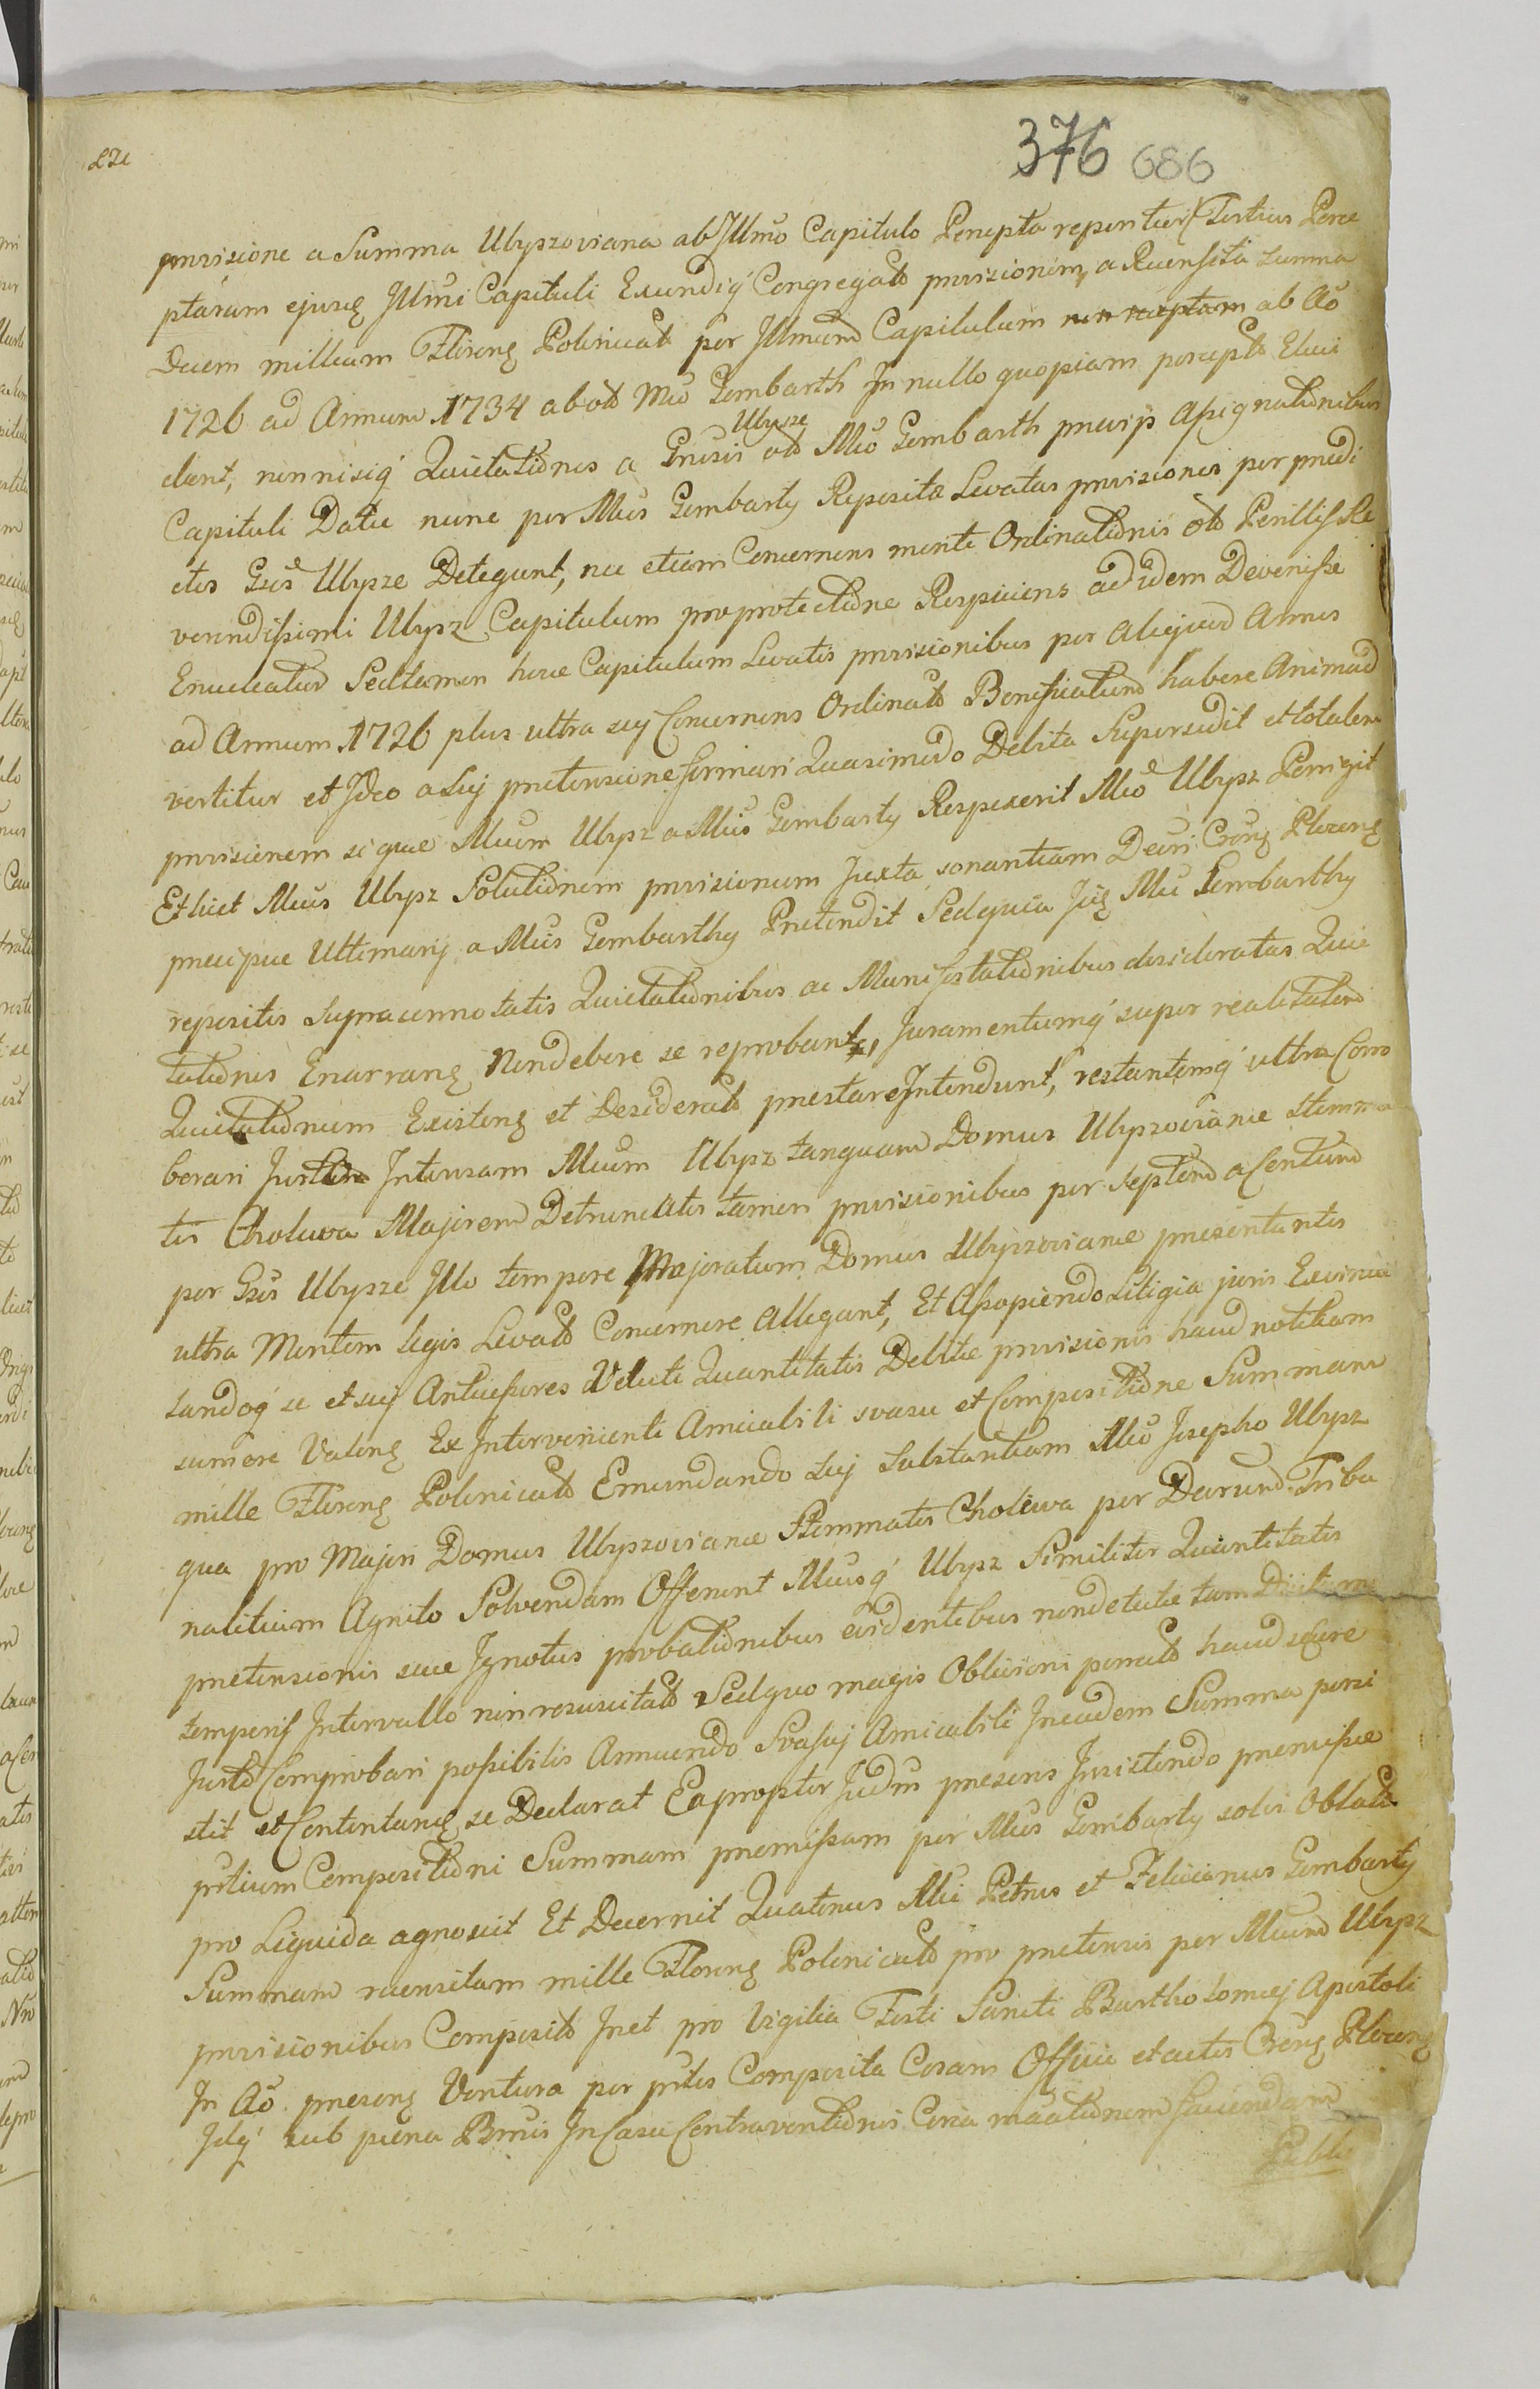 376 686
provisione a Summa Ubyszoviana ab Illmo Capitulo Percepta reperitur Tertius Perce
ptarum ejusq Illmi Capituli Exundiq Congregato provisioniq a Recensita Summa
Decem millium Florenq Polonicalo per Illmum Capitulum non receptam ab Ao
1726 ad Annum 1734 ab olo Mco Gembarth In nullo quopiam percepto Eluci
Ubysze
dent, non nisiq Quietationes a Gnrsis olo Mco Gembarth praevijs Assignationibus
Capituli Datae nunc per Mcos Gembarty Reposita Levatas provisiones per praedi
ctos Gsos Ubysze Detegunt, nec etiam Concernens mente Ordinationis olo Perillis Re
verendissimi Ubysz Capitulum pro protectione Respiciens ad idem Devenisse
Enucleatur Sed tamen hocce Capitulum Levatis provisionibus per Aliquod Annos
ad Annum 1726 plus ultra sey Concernens Ordinato Beneficiatum habere Animad
vertitur et Ideo a Suj praetensione firmari Quasimodo Debita Supersedit et totalem
provisionem si quae Mcum Ubysz a Mcis Gembarty Respexerit Mco Ubysz Porrigit
Et licet Mcus Ubysz Solutionem provisionum Juxta sonantiam Decri Crenq Plocenq
praecipue Ultimarij a Mcis Gembarthy Praetendit Sed quia Jiq Mci Gembarthy
repositis Supra connotatis Quietationibus ac Manifestationibus desideratas Quie
tationes Enarranq Non debere se reprobant, Juramentumq super realitatem
Quietationum Existenq et Desiderato praestare Intendunt, restantemq ultra Com
Intensam Mcum Ubysz tanquam Domus Ubyszovianae Stemma
tis Cholewa Majorem Detruncatis tamen provisionibus per Septem a Centum
per Gsos Ubysze Illo tempore Majoratum Domus Ubyszovianae praesentantes
ultra Mentem legis Levato Concernere Allegant, Et Asopiendo Litigia juris Evincu
landoq se et suj Antecessores Veluti Quantitatis Debitae provisionis haud notitiam
sumere Valenq Ex Interveniente Amicabili svasu et Compositione Summam
mille Florenq Polonicalo Emundando Suj Substantiam Mco Josepho Ubysz
qua pro Majori Domus Ubyszovianae Stemmatis Cholewa per Decrum Tribu
nalitium Agnito Solvendam Offerunt Mcusq Ubysz Similiter Quantitatis
praetensionis suae Ignotus probationibus evidentibus non detectae tam
temporis Intervallo non resuscitalo Sed quo magis Oblivioni porrecto haud secure
Justo Comprobari possibilis Annuendo Svasuj Amicabili In eadem Summa persi
stit et Contentumq se Declarat Eapropter Judm praesens Insistendo praemissae
prtium Compositioni Summam praemissam per Mcos Gembarty solvi Oblato
pro Liquida agnoscit Et Decernit Quatenus Mci Petrus et Felicianus Gembarty
Summam recensitam mille Florenq Polonicalo pro praetensis per Mcum Ubysz
provisionibus Composito Inet pro Vigilia Festi Sancti Bartholomej Apostoli
In Ao praesenq Ventura per prtes Composita Coram Officio et actis Crenq Plocenq
Idq sub paena Bnnis In Casu Contraventionis Circa maationem faciendam
Publi